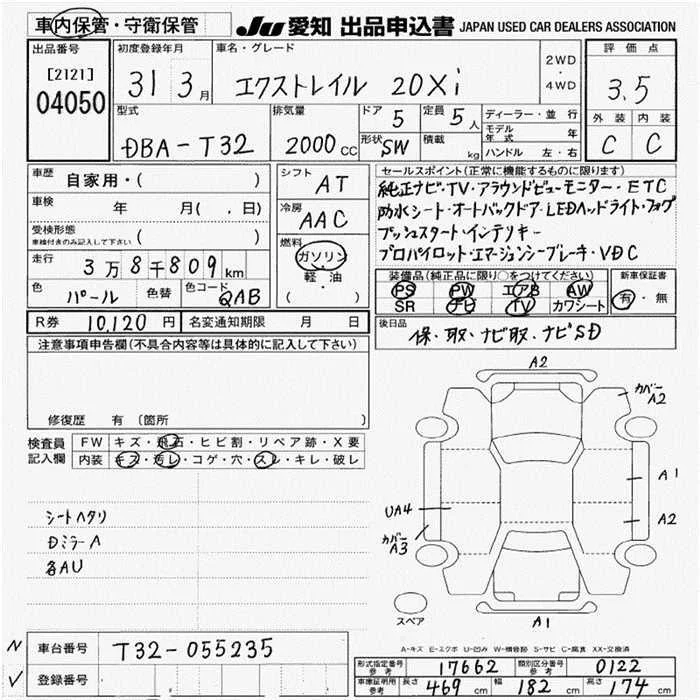 車内保管・守衛保管 JU 愛知 出品申込書 JAPAN USED CAR DEALERS ASSOCIATION
出品番号 初度登録年月 車名・グレード 2WD ・ 4WD 評価点
[2121] 04050 31 3月 エクストレイル 20Xi 3.5
型式 排気量 ドア 5 定員 5人 ディーラー・並行 外装 内装
DBA-T32 2000cc 形状 SW 積載 kg モデル年式 年 C C
ハンドル 左・右
車歴 自家用・( ) シフト AT セールスポイント(正常に機能するものに限ります)
車検 年 月( , 日) 冷房 AAC 純正ナビ・TV・アラウンドビューモニター・ETC
受検形態 ( ) 防水シート・オートバックドア・LEDヘッドライト・フォグ
車検付きのみ記入して下さい 燃料 プッシュスタート・インテリキー
走行 3万8千809km ガソリン プロパイロット・エマージェンシーブレーキ・VDC
軽・油 ( )
色 パール 色替 色コード QAB 装備品(純正品に限り○をつけてください) 新車保証書
PS PW エアB AW 有・無
SR ナビ TV カワシート
R券 10,120円 名変通知期限 月 日 後日品
保・取・ナビ取・ナビSD
注意事項申告欄(不具合内容等は具体的に記入して下さい)
修復歴 有 (箇所 )
検査員記入欄 FW キズ・飛石・ヒビ割・リペア跡・X要
内装 キズ・汚レ・コゲ・穴・スレ・キレ・破レ
A2
カバーA2
A1
UA4 A2
カバーA3
シートヘタリ
DミラーA
各AU
スペア A1
A-キズ E-エクボ U-凹み W-補修跡 S-サビ C-腐食 XX-交換済
N 車台番号 T32-055235
✓ 登録番号
形式指定番号 参考 17662 類別区分番号 参考 0122
車庫証明用 参考 長さ 469cm 幅 182cm 高さ 174cm